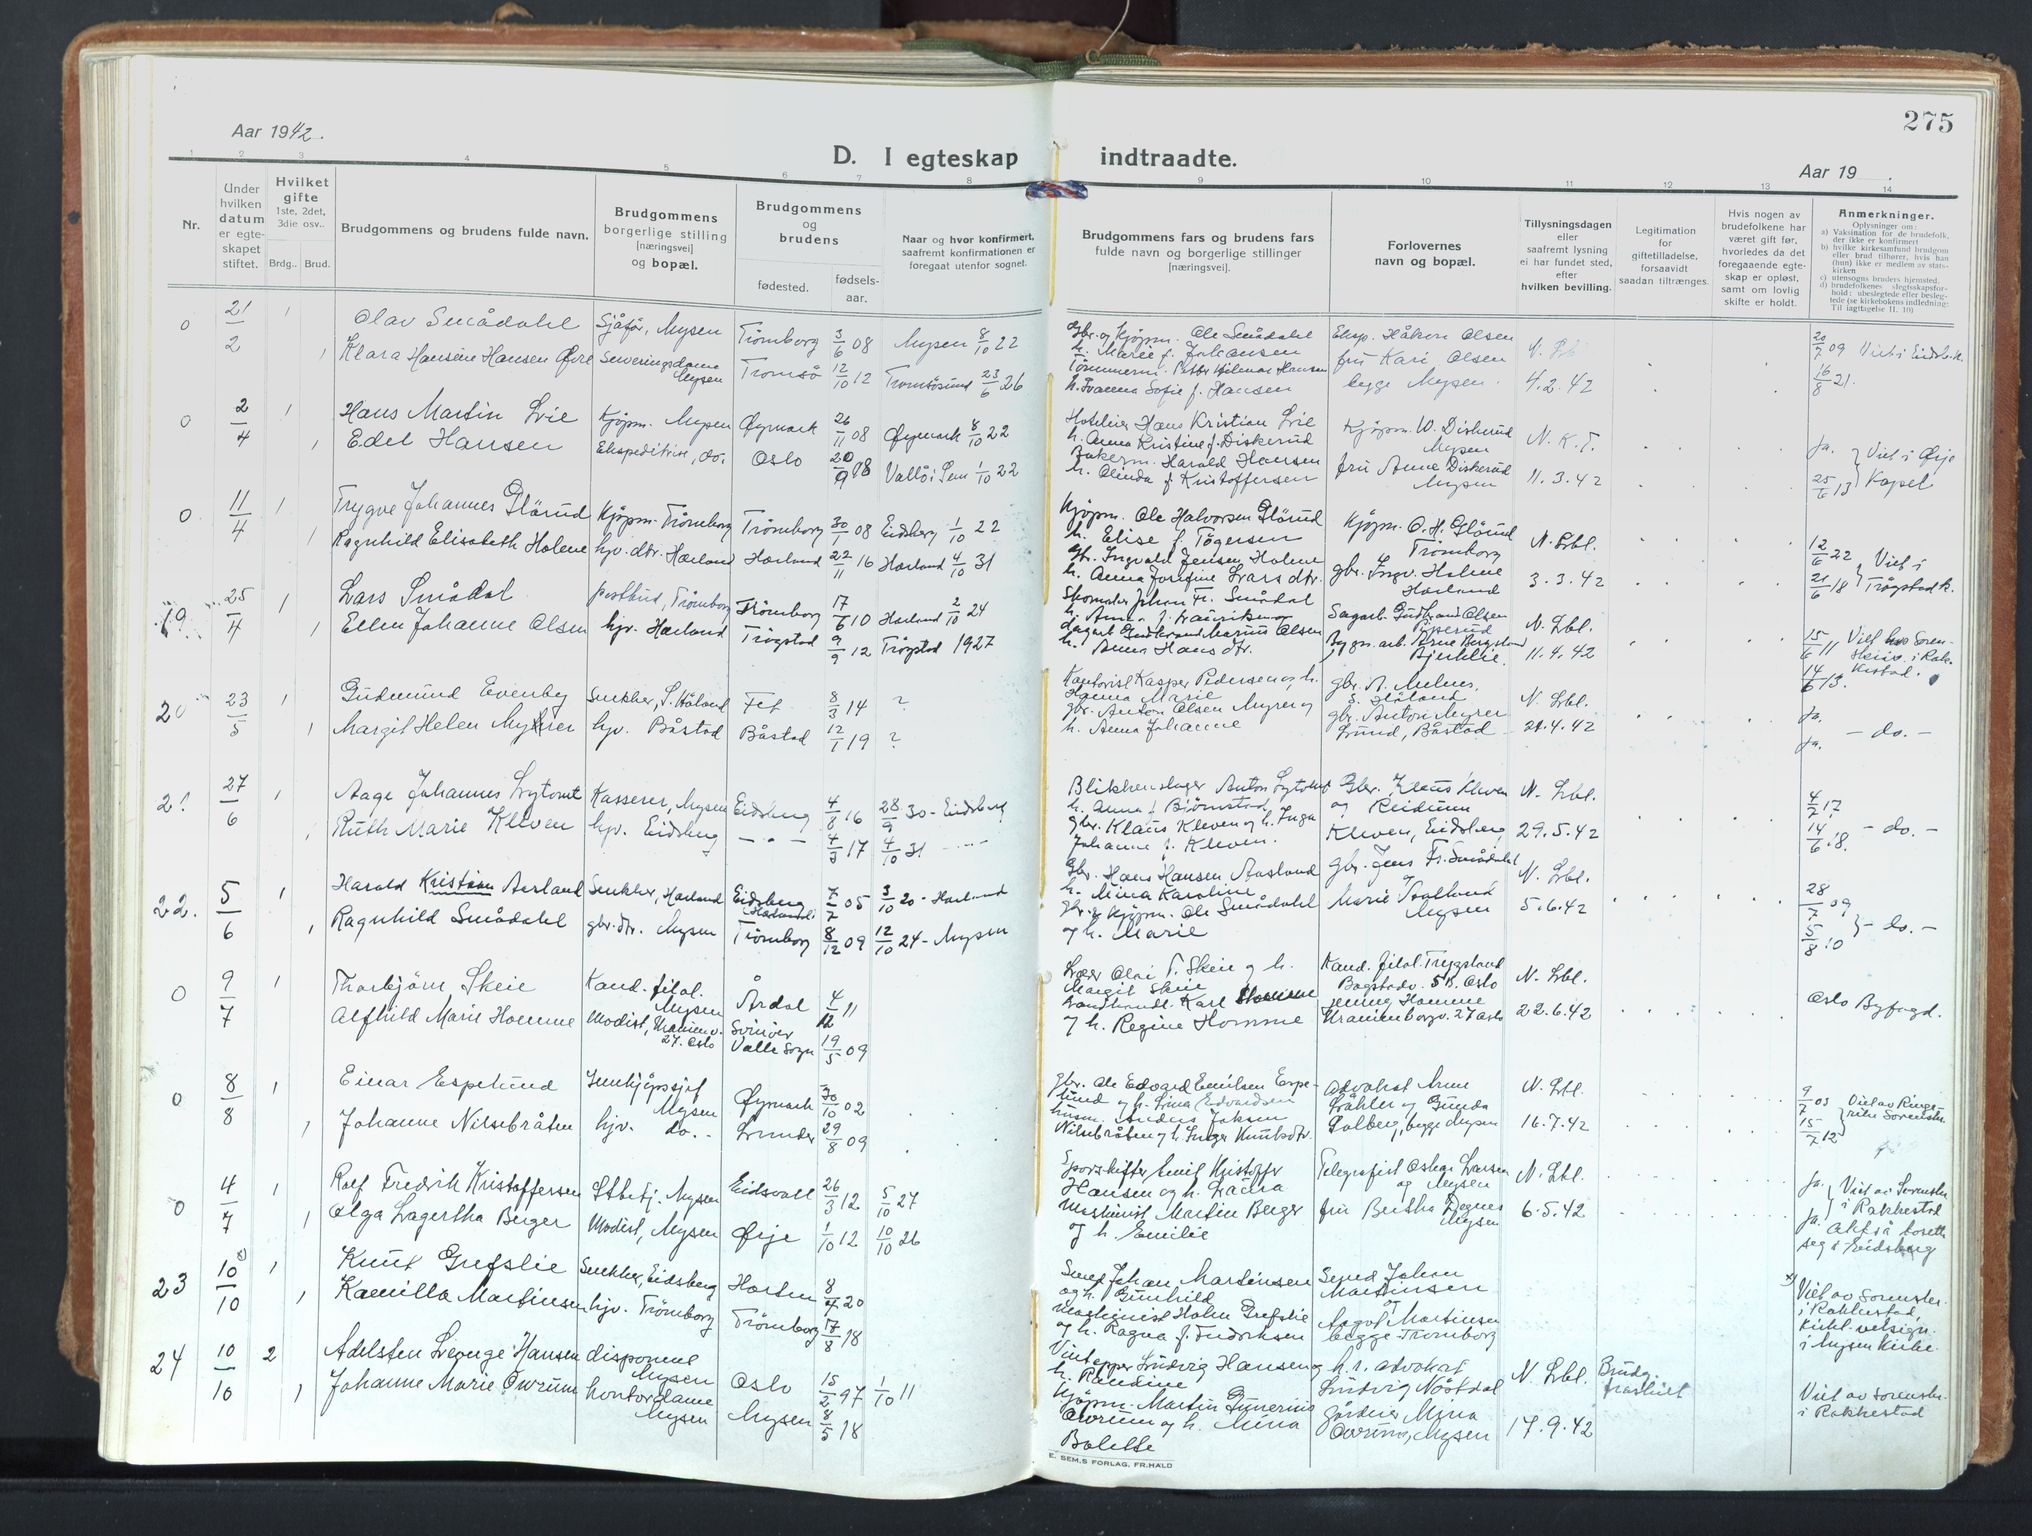 275
Aar 1942.
D. I egteskap indtraadte.
Aar 19
1 2 3 4 5 6 7 8 9 10 11 12 13 14
Nr.
Under hvilken datum er egteskapet stiftet.
Hvilket gifte
1ste, 2det, 3die osv..
Brdg.. Brud.
Brudgommens og brudens fulde navn.
Brudgommens borgerlige stilling [næringsvei] og bopæl.
Brudgommens og brudens
fødested.
fødselsaar.
Naar og hvor konfirmert, saafremt konfirmationen er foregaat utenfor sognet.
Brudgommens fars og brudens fars fulde navn og borgerlige stillinger [næringsvei].
Forlovernes navn og bopæl.
Tillysningsdagen eller saafremt lysning ei har fundet sted, efter hvilken bevilling.
Legitimation for giftetilladelse, forsaavidt saadan tiltrænges.
Hvis nogen av brudefolkene har været gift før, hvorledes da det foregaaende egteskap er opløst, samt om lovlig skifte er holdt.
Anmerkninger.
Oplysninger om:
a) Vaksination for de brudefolk, der ikke er konfirmert
b) hvilke kirkesamfund brudgom eller brud tilhører, hvis han (hun) ikke er medlem av statskirken
c) utensogns bruders hjemsted.
d) brudefolkenes slegtsskapsforhold: ubeslegtede eller beslegtede (se kirkebokens indledning: Til iagttagelse II. 10)
0 21/2 1 Olav Smådahl Sjåfør, Mysen Trømborg 3/6 08 Mysen 8/10 22
1 Klara Hansine Hansen Øvre Serveringsdame Mysen Tromsø 12/10 12 Tromsøsund 23/6 26
Gbr. og kjøpm. Ole Smådahl
h. Marie f. Johansen
Tømmerm. Petter Hilmar Hansen
h. Ivanna Sofie f. Hansen
Eksp. Håkon Olsen
fru Kari Olsen
begge Mysen.
4.2.42
20/7 09 Viet i Eidsb. k.
16/8 21.
0 2/4 1 Hans Martin Lie Kjøpm. Mysen Øymark 26/11 08 Øymark 8/10 22
1 Edel Hansen Ekspeditrise, do. Oslo 20/9 08 Vallø i Sem 1/10 22
Hotelier Hans Kristian Lie
h. Anna Kristine f. Diskerud
Bakerm. Harald Hansen
h. Olinda f. Kristoffersen
Kjøpm. W. Diskerud
Mysen
fru Anne Diskerud
Mysen
N. K. T.
11.3.42
Ja. Viet i Ørje
25/6 13 Kapel
0 11/4 1 Trygve Johannes Glørud Kjøpm. Trømborg Trømborg 30/1 08 Eidsberg 1/10 22
1 Ragnhild Elisabeth Holene hjv. dtr. Hærland Hærland 22/11 16 Hærland 4/10 31
Kjøpm. Ole Halvorsen Glørud
h. Elise f. Tøgersen
Gbr. Ingvald Jensen Holene
h. Anna Josefine Larsdtr.
Kjøpm. O. H. Glørud
Trømborg
gbr. Ingv. Holene
Hærland
N. Lbl.
3.3.42
12/6 22 Viet i
21/6 18 Trøgstad k.
19 25/4 1 Lars Smådal postbud, Trømborg Trømborg 17/6 10 Hærland 2/10 24
1 Ellen Johanne Olsen hjv. Hærland Trøgstad 9/9 12 Trøgstad 1927
Skomaker Johan Fr. Smådal
h. Anna f. Lauritsen
Sagarb. Gudbrand Marius Olsen
h. Anna Hansdtr.
Sagarb. Gudbrand Olsen
Bygn. arb. Arne Bergslund
Bjerklie.
N. Lbl.
11.4.42
15/6 11 Viet hos Soren-
skriv. i Rak-
14/6 13. kestad.
20 23/5 1 Gudmund Evenby Snekker, S. Høland Fet 8/3 14 ?
1 Margit Helen Myhrer hjv. Båstad Båstad 12/1 19 ?
Kontorist Kasper Pedersen og h.
Hanna Marie
gbr. Anton Olsen Myrer og
h. Anna Johanne
gbr. A. Melnes,
S. Høland
gbr. Anton Myrer
Lund, Båstad
N. Lbl.
21.4.42
Ja.
Ja. - do. -
21 27/6 1 Aage Johannes Lytomt Kasserer, Mysen Eidsberg 4/8 16 28/9 30 - Eidsberg
1 Ruth Marie Kleven hjv. Eidsberg - " - 4/3 17 4/10 31 - " -
Blikkenslager Anton Lytomt
h. Anna f. Bjørnstad
Gbr. Klaus Kleven og h. Inga
Johanne f. Kleven.
Gbr. Klaus Kleven
og Reidunn
Kleven, Eidsberg
N. Lbl.
29.5.42
4/7 17.
14/6 18. - do. -
22. 5/6 1 Harald Kristian Aasland Snekker, Hærland Eidsberg (Hærland) 7/7 05 3/10 20 - Hærland
1 Ragnhild Smådahl gbr. dtr. Mysen Trømborg 8/12 09 12/10 24 - Mysen
Gbr. Hans Hansen Aasland
h. Mina Karoline
gbr. og kjøpm. Ole Smådahl
og h. Marie
gbr. Jens Fr. Smådahl
Marie
Mysen
N. Lbl.
5.6.42
28/7 09
5/8 10 - do. -
0 9/7 1 Thorbjørn Skeie Kand. filol. Mysen Årdal 4/12 11
Alfhild Marie Homme Modist, Uranienv. 27. Oslo Svinør Valle Sogn 19/5 09
Lærer Olai T. Skeie og h.
Margit Skeie
Landhandl. Karl Homme
og h. Regine Homme
Kand. filol. Trygsland
Bogstadv. 5B. Oslo
Jenny Homme
Uranienborgv. 27 Oslo
N. Lbl.
22.6.42
Oslo Byfogd.
0 8/8 1 Einar Espelund Innkjøpssjef Mysen Øymark 30/10 02
1 Johanne Nilsebråten hjv. do. - Lunder 29/8 09
gbr. Ole Edvard Emilsen Espe-
lund og h. Lina Edvardsen
husm. Anders Jakson
Nilsebråten og h. Inger Knutsdtr.
Advokat Arne
Dahler og Gunda
Solberg, begge Mysen
N. Lbl.
16.7.42
9/7 03 Viet av Ringe-
15/7 12 rike Sorenskr.
0 4/7 1 Rolf Fredrik Kristoffersen Stbetj. Mysen Eidsvoll 26/3 12 5/10 27
1 Olga Lagertha Berger Modist, Mysen Ørje 1/10 12 10/10 26
Sporskifter Emil Kristoffer
Hansen og h. Laura
Maskinist Martin Berger
og h. Emilie
Telegrafist Oskar Larsen
og Mysen
fru Bertha Degnes
Mysen
N. Lbl.
6.5.42
Ja. Viet av Sorenskr.
i Rakkestad
Ja. Akt. å bosette
seg i Eidsberg
23 10/10 1 Knut Grefslie Snekker, Eidsberg Horten 8/4 20
1 Kamilla Martinsen hjv. Trømborg Trømborg 17/8 18
Smed Johan Martinsen
og h. Gunhild
Maskinist Holm Grefslie
og h. Ragna f. Fredriksen
Smed Johan
Martinsen
og
Aagot Martinsen
begge Trømborg
x) Viet av Sorenskr.
i Rakkestad,
kirkl. velsign.
i Mysen Kirke.
24 10/10 2 Adelsten George Hansen disponent Mysen Oslo 15/2 97 1/10 11
1 Johanne Marie Owrum kontordame Mysen Mysen 8/5 18
Vintapper Ludvig Hansen og
h. Randine
Kjøpm. Martin Gunerius
Owrum og h. Mina
Bolette
h.r. advokat
Ludvig Nøstdal
Gårdeier Mina
Owrum, Mysen
N. Lbl.
14.9.42
Brudg.
fraskilt
Viet av Sorenskr.
i Rakkestad
E. SEM.S FORLAG, FR.HALD